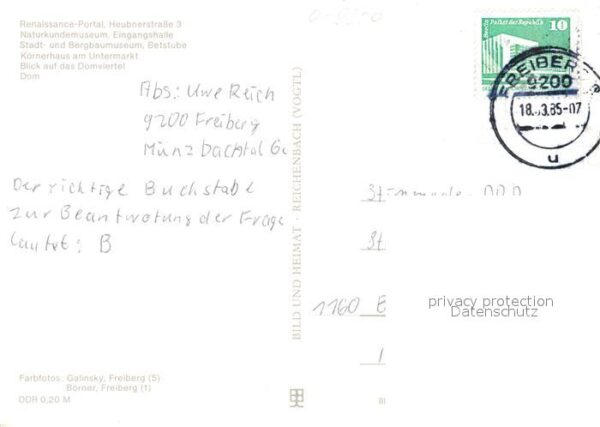 Renaissance-Portal, Heubnerstraße 3
Naturkundemuseum, Eingangshalle
Stadt- und Bergbaumuseum, Betstube
Körnerhaus am Untermarkt
Blick auf das Domviertel
Dom
Berlin Palast der Republik 10
FREIBERG
9200
18.-3.85-07
u
Abs: Uwe Reich
9200 Freiberg
Münzbachtal 6c
Der richtige Buchstabe
zur Beantwortung der Frage
lautet: B
BILD UND HEIMAT · REICHENBACH (VOGTL)
DDR
1160 B
privacy protection
Datenschutz
Farbfotos: Galinsky, Freiberg (5)
Börner, Freiberg (1)
DDR 0,20 M
BI